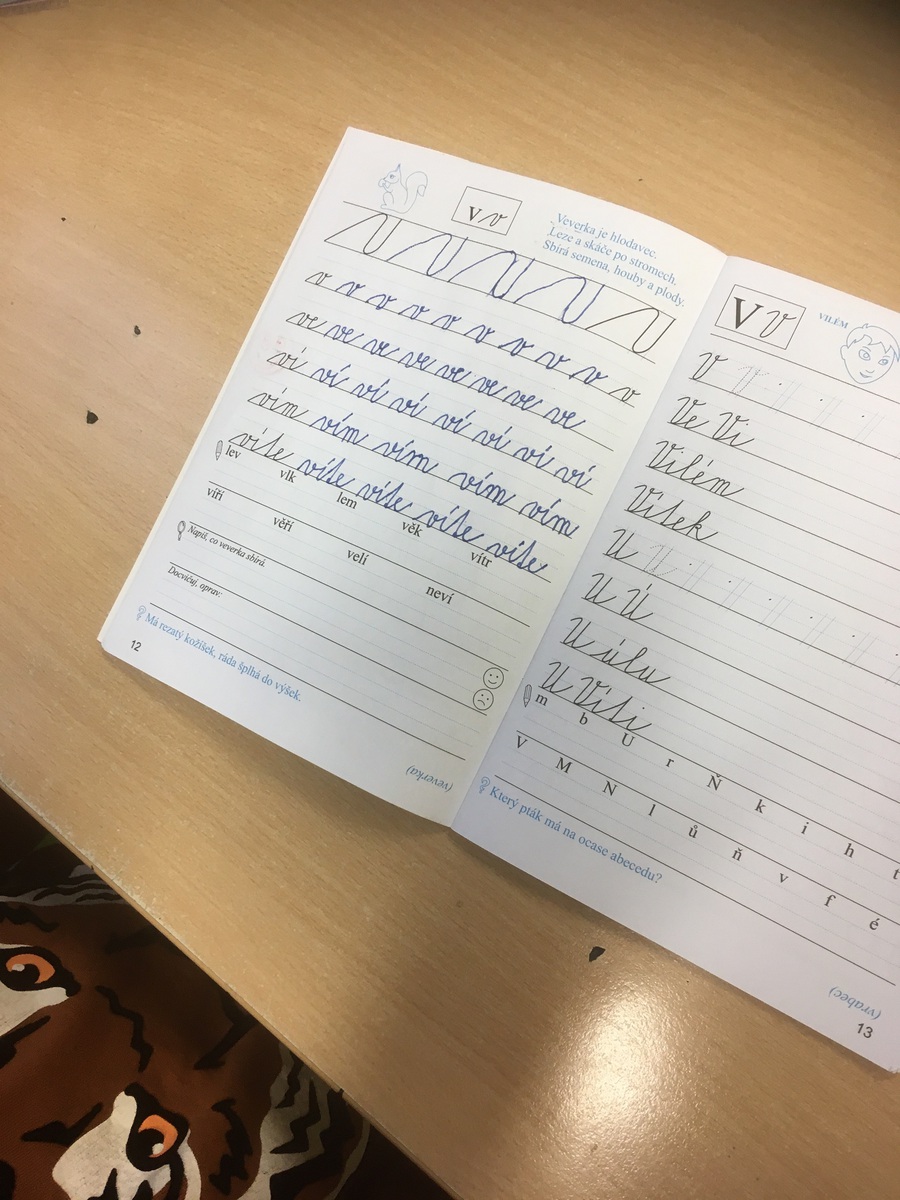 V v
Veverka je hlodavec.
Leze a skáče po stromech.
Sbírá semena, houby a plody.
v v v v v v v v v v
ve ve ve ve ve ve ve ve
ví ví ví ví ví ví ví ví
vím vím vím vím vím
víte víte víte víte víte
lev vlk lem věk vítr
víří věří velí neví
Napiš, co veverka sbírá.
Docvičuj, oprav:
Má rezatý kožíšek, ráda šplhá do výšek.
(veverka)
12
V v
VILÉM
V
Ve Vi
Vilém
Vítek
U U
U Ú
U úlu
U Víti
m b U r Ň k i h t
V M N l ů ň v f é
Který pták má na ocase abecedu?
(vrabec)
13